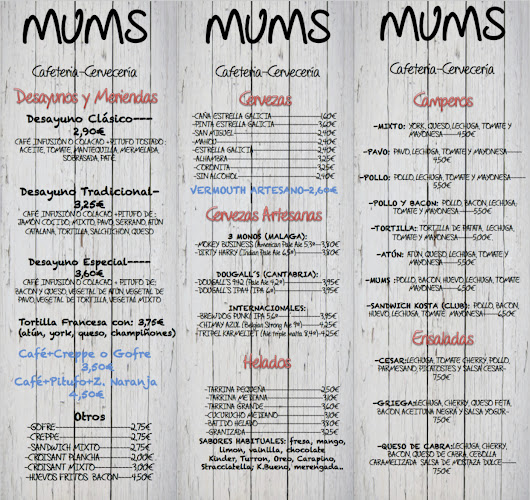 MUMS
Cafetería-Cervecería
Desayunos y Meriendas
Desayuno Clásico----
2,90€
CAFÉ INFUSIÓN O COLACAO +PITUFO TOSTADO:
ACEITE, TOMATE, MANTEQUILLA, MERMELADA,
SOBRASADA, PATÉ.
Desayuno Tradicional-
3,25€
CAFÉ, INFUSIÓN O COLACAO +PITUFO DE:
JAMÓN COCIDO, MIXTO, PAVO, SERRANO, ATÚN
CATALANA, TORTILLA, SALCHICHÓN, QUESO
Desayuno Especial----
3,60€
CAFÉ INFUSIÓN O COLACAO + PITUFO DE:
BACON Y QUESO, VEGETAL DE ATÚN, VEGETAL DE
PAVO, VEGETAL DE TORTILLA, VEGETAL MIXTO
Tortilla Francesa con: 3,75€
(atún, york, queso, champiñones)
Café+Creppe o Gofre
3,50€
Café+Pitufo+Z. Naranja
4,50€
Otros
-GOFRE 2,75€
-CREPPE 2,75€
-SANDWICH MIXTO 2,75€
-CROISANT PLANCHA 2,00€
-CROISANT MIXTO 3,00€
-HUEVOS FRITOS BACON 4,50€
MUMS
Cafetería-Cervecería
Cervezas
-CAÑA ESTRELLA GALICIA 1,60€
-PINTA ESTRELLA GALICIA 3,40€
-SAN MIGUEL 2,40€
-MAHOU 2,40€
-ESTRELLA GALICIA 2,40€
-ALHAMBRA 3,25€
-CORONITA 3,25€
-SIN ALCOHOL 2,40€
VERMOUTH ARTESANO-2,60€
Cervezas Artesanas
3 MONOS (MALAGA):
-MOKEY BUSINESS (American Pale Ale 5.3º) 3,80€
-DIRTY HARRY (Indian Pale Ale 6.5º) 3,80€
DOUGALL'S (CANTABRIA):
-DOUGALL'S 942 (Pale Ale 4.2º) 3,95€
-DOUGALL'S IPA4 (IPA 6º) 3,95€
INTERNACIONALES:
-BREWDOG PUNK (IPA 5.6º) 3,95€
-CHIMAY AZUL (Belgian Strong Ale 9º) 4,25€
-TRIPEL KARMELIET (Ale triple malta 8,4º) 4,25€
Helados
-TARRINA PEQUEÑA 2,50€
-TARRINA MEDIANA 3,10€
-TARRINA GRANDE 3,60€
-CUCURUCHO MEDIANO 3,10€
-BATIDO HELADO 3,50€
-GRANIZADA 3,25€
SABORES HABITUALES: fresa, mango,
limon, vainilla, chocolate
Kinder, Turron, Oreo, Carapino,
Stracciatella, K.Bueno, merengada..
MUMS
Cafetería-Cervecería
Camperos
-MIXTO: YORK, QUESO, LECHUGA, TOMATE Y
MAYONESA 4,50€
-PAVO: PAVO, LECHUGA, TOMATE Y MAYONESA
4,50€
-POLLO: POLLO, LECHUGA, TOMATE Y MAYONESA
5,50€
-POLLO Y BACON: POLLO, BACON, LECHUGA,
TOMATE Y MAYONESA 5,50€
-TORTILLA: TORTILLA DE PATATA, LECHUGA,
TOMATE Y MAYONESA 5,00€
-ATÚN: ATÚN, QUESO, LECHUGA, TOMATE Y
MAYONESA 5,50€
-MUMS :POLLO, BACON, HUEVO, LECHUGA, TOMATE
MAYONESA 6,50€
-SANDWICH KOSTA (CLUB): POLLO, BACON,
HUEVO, LECHUGA, TOMATE, MAYONESA 6,50€
Ensaladas
-CESAR:LECHUGA, TOMATE CHERRY, POLLO,
PARMESANO, PICATOSTES Y SALSA CESAR-
7,50€
-GRIEGA:LECHUGA, CHERRY, QUESO FETA,
BACON, ACEITUNA NEGRA Y SALSA YOGUR-
7,50€
-QUESO DE CABRA:LECHUGA, CHERRY,
BACON, QUESO DE CABRA, CEBOLLA
CARAMELIZADA, SALSA DE MOSTAZA DULCE
7,50€